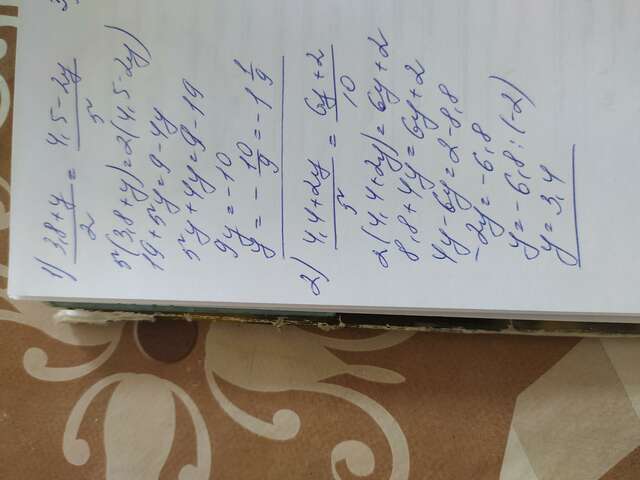 1) (3,8+y)/2 = (4,5-2y)/5
5(3,8+y)=2(4,5-2y)
19+5y=9-4y
5y+4y=9-19
9y=-10
y=-10/9=-1 1/9
2) (4,4+2y)/5 = (6y+2)/10
2(4,4+2y)=6y+2
8,8+4y=6y+2
4y-6y=2-8,8
-2y=-6,8
y=-6,8:(-2)
y=3,4